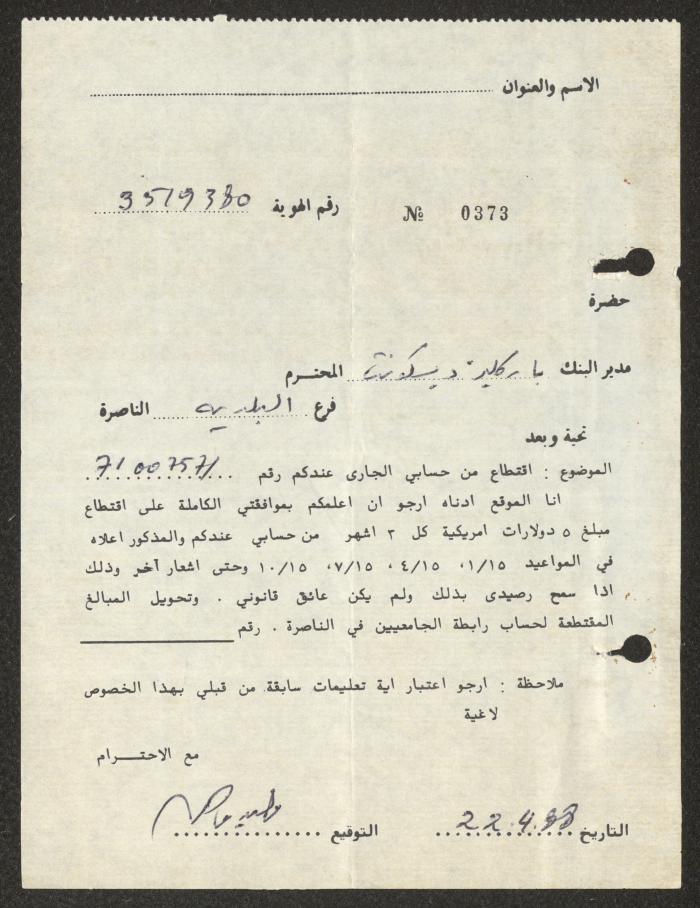 الاسم والعنوان
رقم الهوية 3519380 № 0373
حضرة
مدير البنك باركليز ديسكونت المحترم
فرع البلدية الناصرة
تحية وبعد
الموضوع : اقتطاع من حسابي الجارى عندكم رقم 7100757/
انا الموقع ادناه ارجو ان اعلمكم بموافقتي الكاملة على اقتطاع
مبلغ ٥ دولارات امريكية كل ٣ اشهر من حسابي عندكم والمذكور اعلاه
في المواعيد ٠١/١٥ ، ٤/١٥ ، ٠٧/١٥ ١٠/١٥ وحتى اشعار آخر وذلك
اذا سمح رصيدى بذلك ولم يكن عائق قانوني . وتحويل المبالغ
المقتطعة لحساب رابطة الجامعيين في الناصرة . رقم
ملاحظة : ارجو اعتبار اية تعليمات سابقة من قبلي بهذا الخصوص
لاغية
مع الاحترام
التاريخ 22.4.83 التوقيع